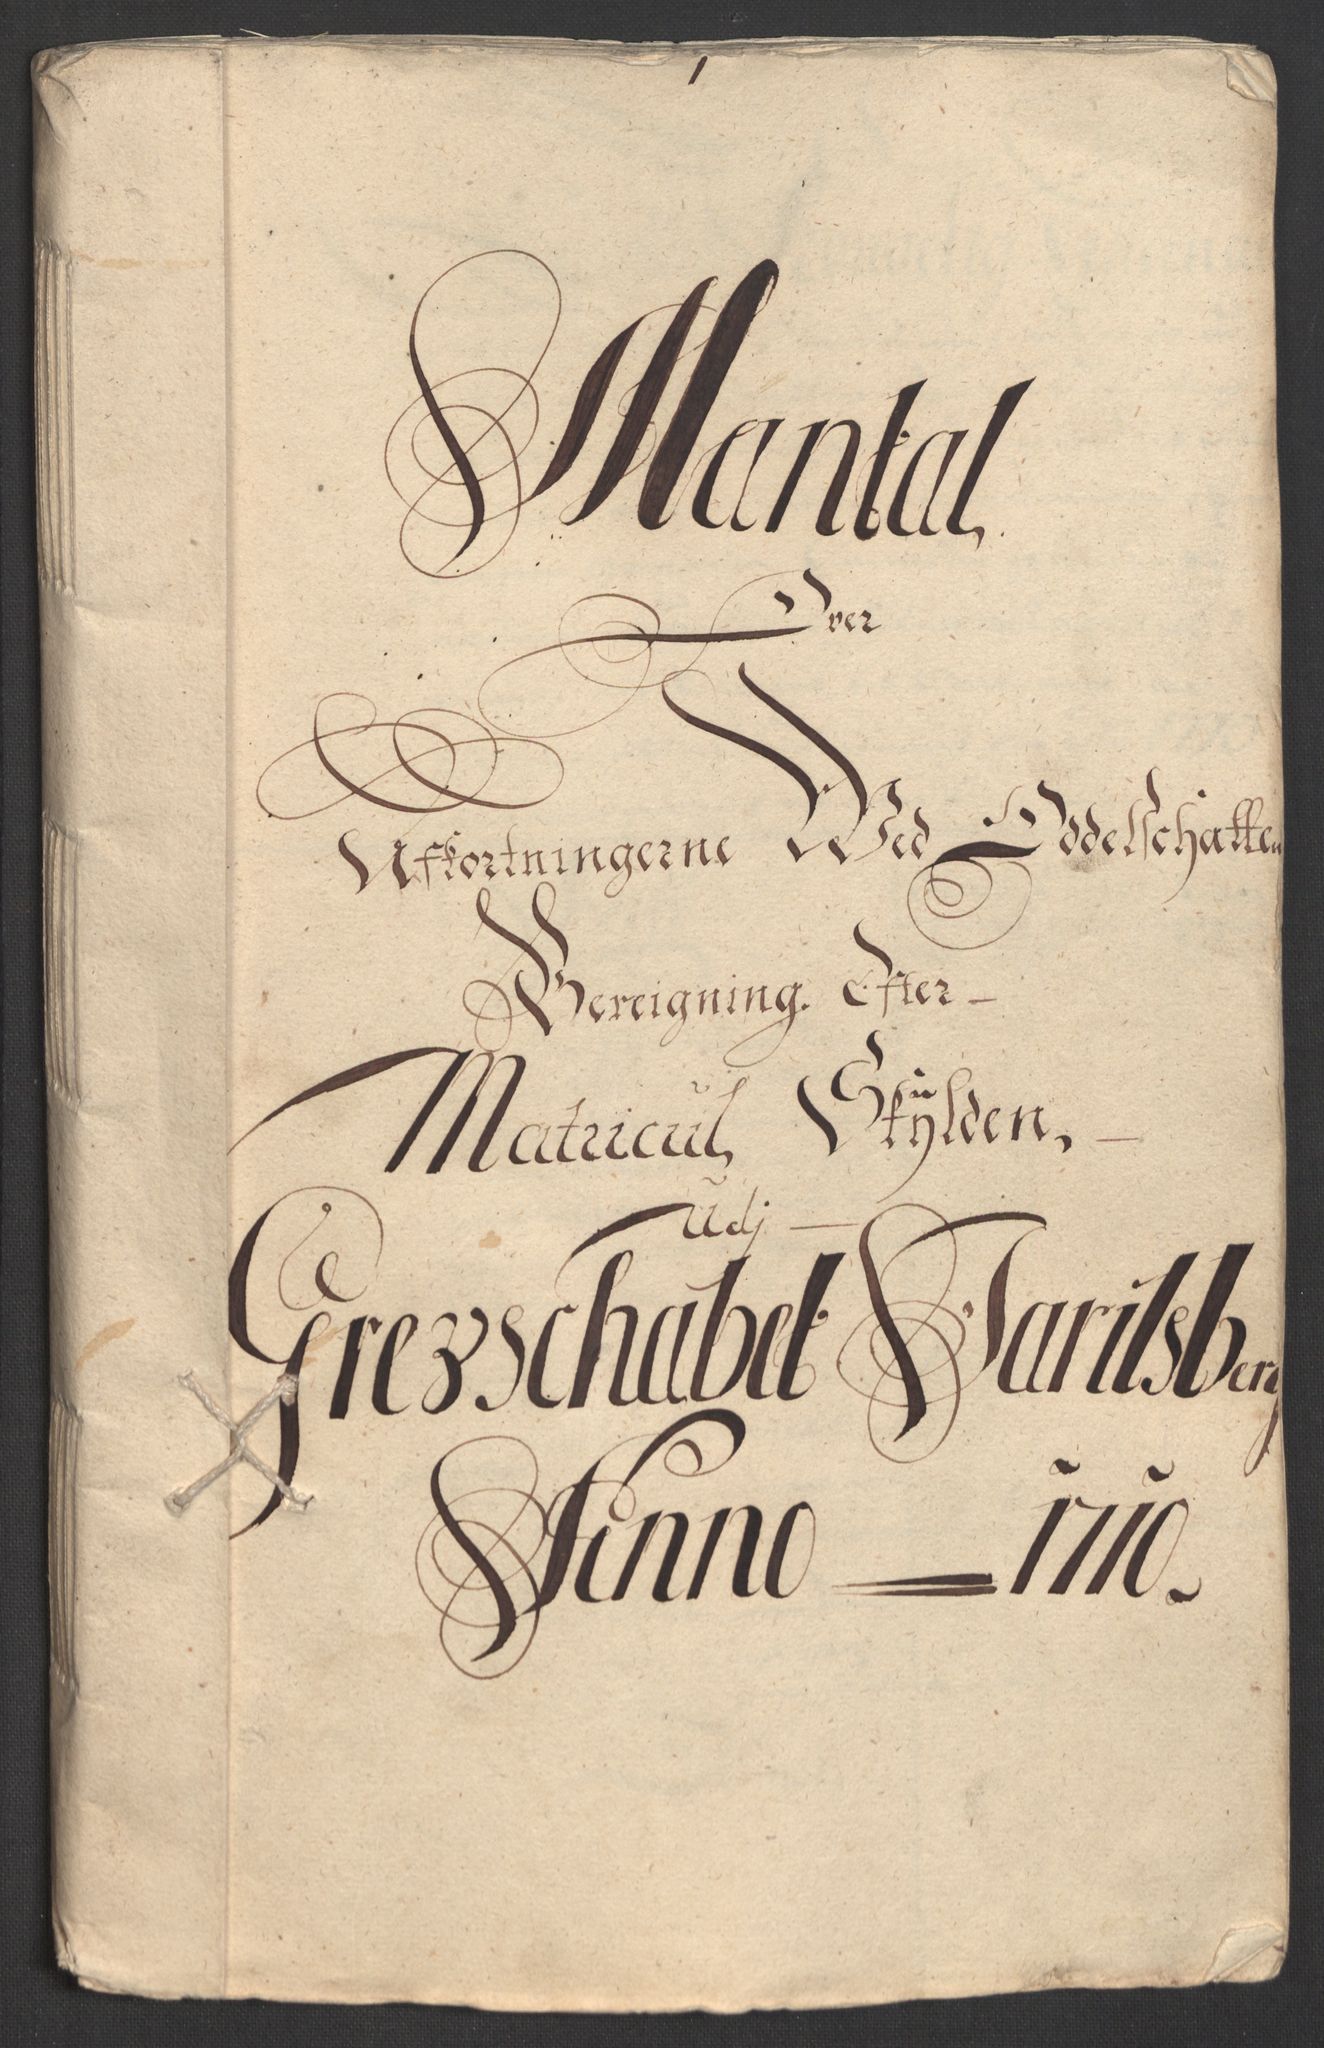 1
Mantal,
Over
Afkortningerne Wed Oddelschatten
Bereigning. Efter
Matricul, Skÿlden,
Udj
Grevschabet Jarilsberg
Anno 1710.